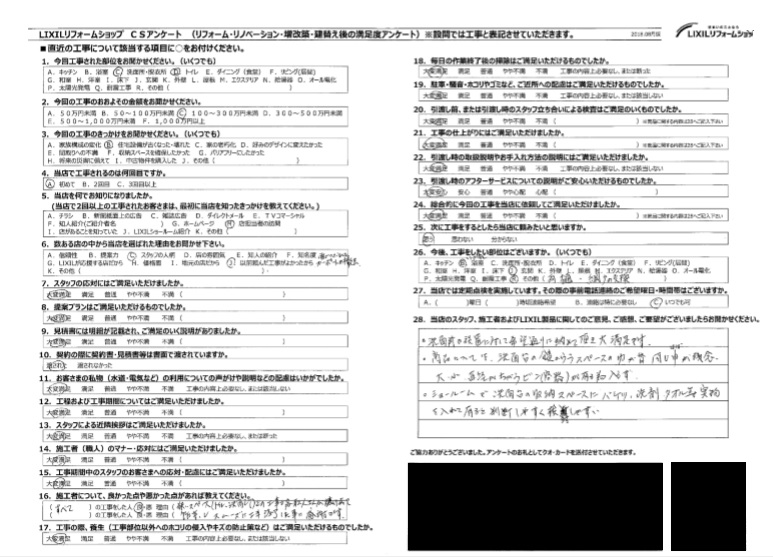 LIXILリフォームショップ CSアンケート （リフォーム・リノベーション・増改築・建替え後の満足度アンケート）※設問では工事と表記させていただきます。
LIXILリフォームショップ
■直近の工事について該当する項目に○をお付けください。
1. 今回工事された部位をお聞かせください。（いくつでも）
A. キッチン B. 浴室 C. 洗面所・脱衣所 D. トイレ E. ダイニング（食堂） F. リビング(居間)
G. 和室 H. 洋室 I. 床下 J. 玄関 K. 外壁 L. 屋根 M. エクステリア N. 給湯器 O. オール電化
P. 太陽光発電 Q. 耐震工事 R. その他（ ）
2. 今回の工事のおおよその金額をお聞かせください。
A. 50万円未満 B. 50～100万円未満 C. 100～300万円未満 D. 300～500万円未満
E. 500～1,000万円未満 F. 1,000万円以上
3. 今回の工事のきっかけをお聞かせください。（いくつでも）
A. 家族構成の変化 B. 住宅設備が古くなった・壊れた C. 家の老朽化 D. 好みのデザインに変えたかった
E. 間取りへの不満 F. 収納スペースを確保したかった G. バリアフリーにしたかった
H. 将来の災害に備えて I. 中古物件を購入した J. その他（ ）
4. 当店で工事されるのは何回目ですか。
A. 初めて B. 2回目 C. 3回目以上
5. 当店を何でお知りになりましたか。
（当店で2回以上の工事されたお客さまは、最初に当店を知ったきっかけを教えてください。）
A. チラシ B. 新聞紙面上の広告 C. 雑誌広告 D. ダイレクトメール E. TVコマーシャル
F. 知人紹介(ご紹介者名 ) G. ホームページ H. 店担当者の訪問
I. 店があることを知っていた J. LIXILショールーム紹介 K. その他（ ）
6. 数ある店の中から当店を選ばれた理由をお聞かせ下さい。
A. 信頼性 B. 提案力 C. スタッフの人柄 D. 店の雰囲気 E. 知人の紹介 F. 知名度
G. LIXILが応援する店だから H. 価格面 I. 地元の店だから J. 以前頼んだ工事がよかったから
K. その他（ ）
7. スタッフの応対にはご満足いただけましたか。
大変満足 満足 普通 やや不満 不満（ ）
8. 提案プランはご満足いただけるものでしたか。
大変満足 満足 普通 やや不満 不満（ ）
9. 見積書には明細が記載され、ご満足のいく説明がありましたか。
大変満足 満足 普通 やや不満 不満（ ）
10. 契約の際に契約書・見積書等は書面で渡されていますか。
渡された 渡されなかった
11. お客さまの私物（水道・電気など）の利用についての声がけや説明などの配慮はいかがでしたか。
大変満足 満足 普通 やや不満 不満 工事の内容上必要なし、または該当しない
12. 工程および工事期間についてはご満足いただけましたか。
大変満足 満足 普通 やや不満 不満（ ）
13. スタッフによる近隣挨拶はご満足いただけましたか。
大変満足 満足 普通 やや不満 不満 工事の内容上必要なし、または断った
14. 施工者（職人）のマナー・応対にはご満足いただけましたか。
大変満足 満足 普通 やや不満 不満（ ）
15. 工事期間中のスタッフのお客さまへの応対・配慮にはご満足いただけましたか。
大変満足 満足 普通 やや不満 不満（ ）
16. 施工者について、良かった点や悪かった点があれば教えてください。
（すべて ）の工事をした人 良・悪 理由（
（ ）の工事をした人 良・悪 理由（
17. 工事の際、養生（工事部位以外へのホコリの侵入やキズの防止策など）はご満足いただけるものでしたか。
大変満足 満足 普通 やや不満 不満 工事の内容上必要なし、または該当しない
18. 毎日の作業終了後の掃除はご満足いただけるものでしたか。
大変満足 満足 普通 やや不満 不満 工事の内容上必要なし、または断った
19. 駐車・騒音・ホコリやゴミなど、ご近所への配慮はご満足いただけるものでしたか。
大変満足 満足 普通 やや不満 不満 工事の内容上必要なし、または該当しない
20. 引渡し前、または引渡し時のスタッフ立ち合いによる検査はご満足のいくものでしたか。
大変満足 満足 普通 やや不満 不満（ ）
21. 工事の仕上がりにはご満足いただけましたか。
大変満足 満足 普通 やや不満 不満（ ）
22. 引渡し時の取扱説明やお手入れ方法の説明にはご満足いただけましたか。
大変満足 満足 普通 やや不満 不満 工事の内容上必要なし、または該当しない
23. 引渡し時のアフターサービスについての説明がご安心いただけるものでしたか。
大変安心 安心 普通 やや心配 心配（ ）
24. 総合的に今回の工事を当店に依頼してご満足いただけましたか。
大変満足 満足 普通 やや不満 不満（ ）
25. 次に工事をするとしたら当店に頼みたいと思いますか。
思う 思わない 分からない
26. 今後、工事をしたい部位はございますか。（いくつでも）
A. キッチン B. 浴室 C. 洗面所・脱衣所 D. トイレ E. ダイニング（食堂） F. リビング(居間)
G. 和室 H. 洋室 I. 床下 J. 玄関 K. 外壁 L. 屋根 M. エクステリア N. 給湯器 O. オール電化
P. 太陽光発電 Q. 耐震工事 R. その他（
27. 当店では定期点検を実施しています。その際の事前電話連絡のご希望曜日・時間帯はございますか。
A.（ ）曜日（ ）時頃連絡希望 B. 連絡は特に必要なし C. いつでも可
28. 当店のスタッフ、施工者およびLIXIL製品に関してのご意見、ご感想、ご要望がございましたらお聞かせください。
ご協力ありがとうございました。アンケートのお礼としてクオ・カードを送付させていただきます。